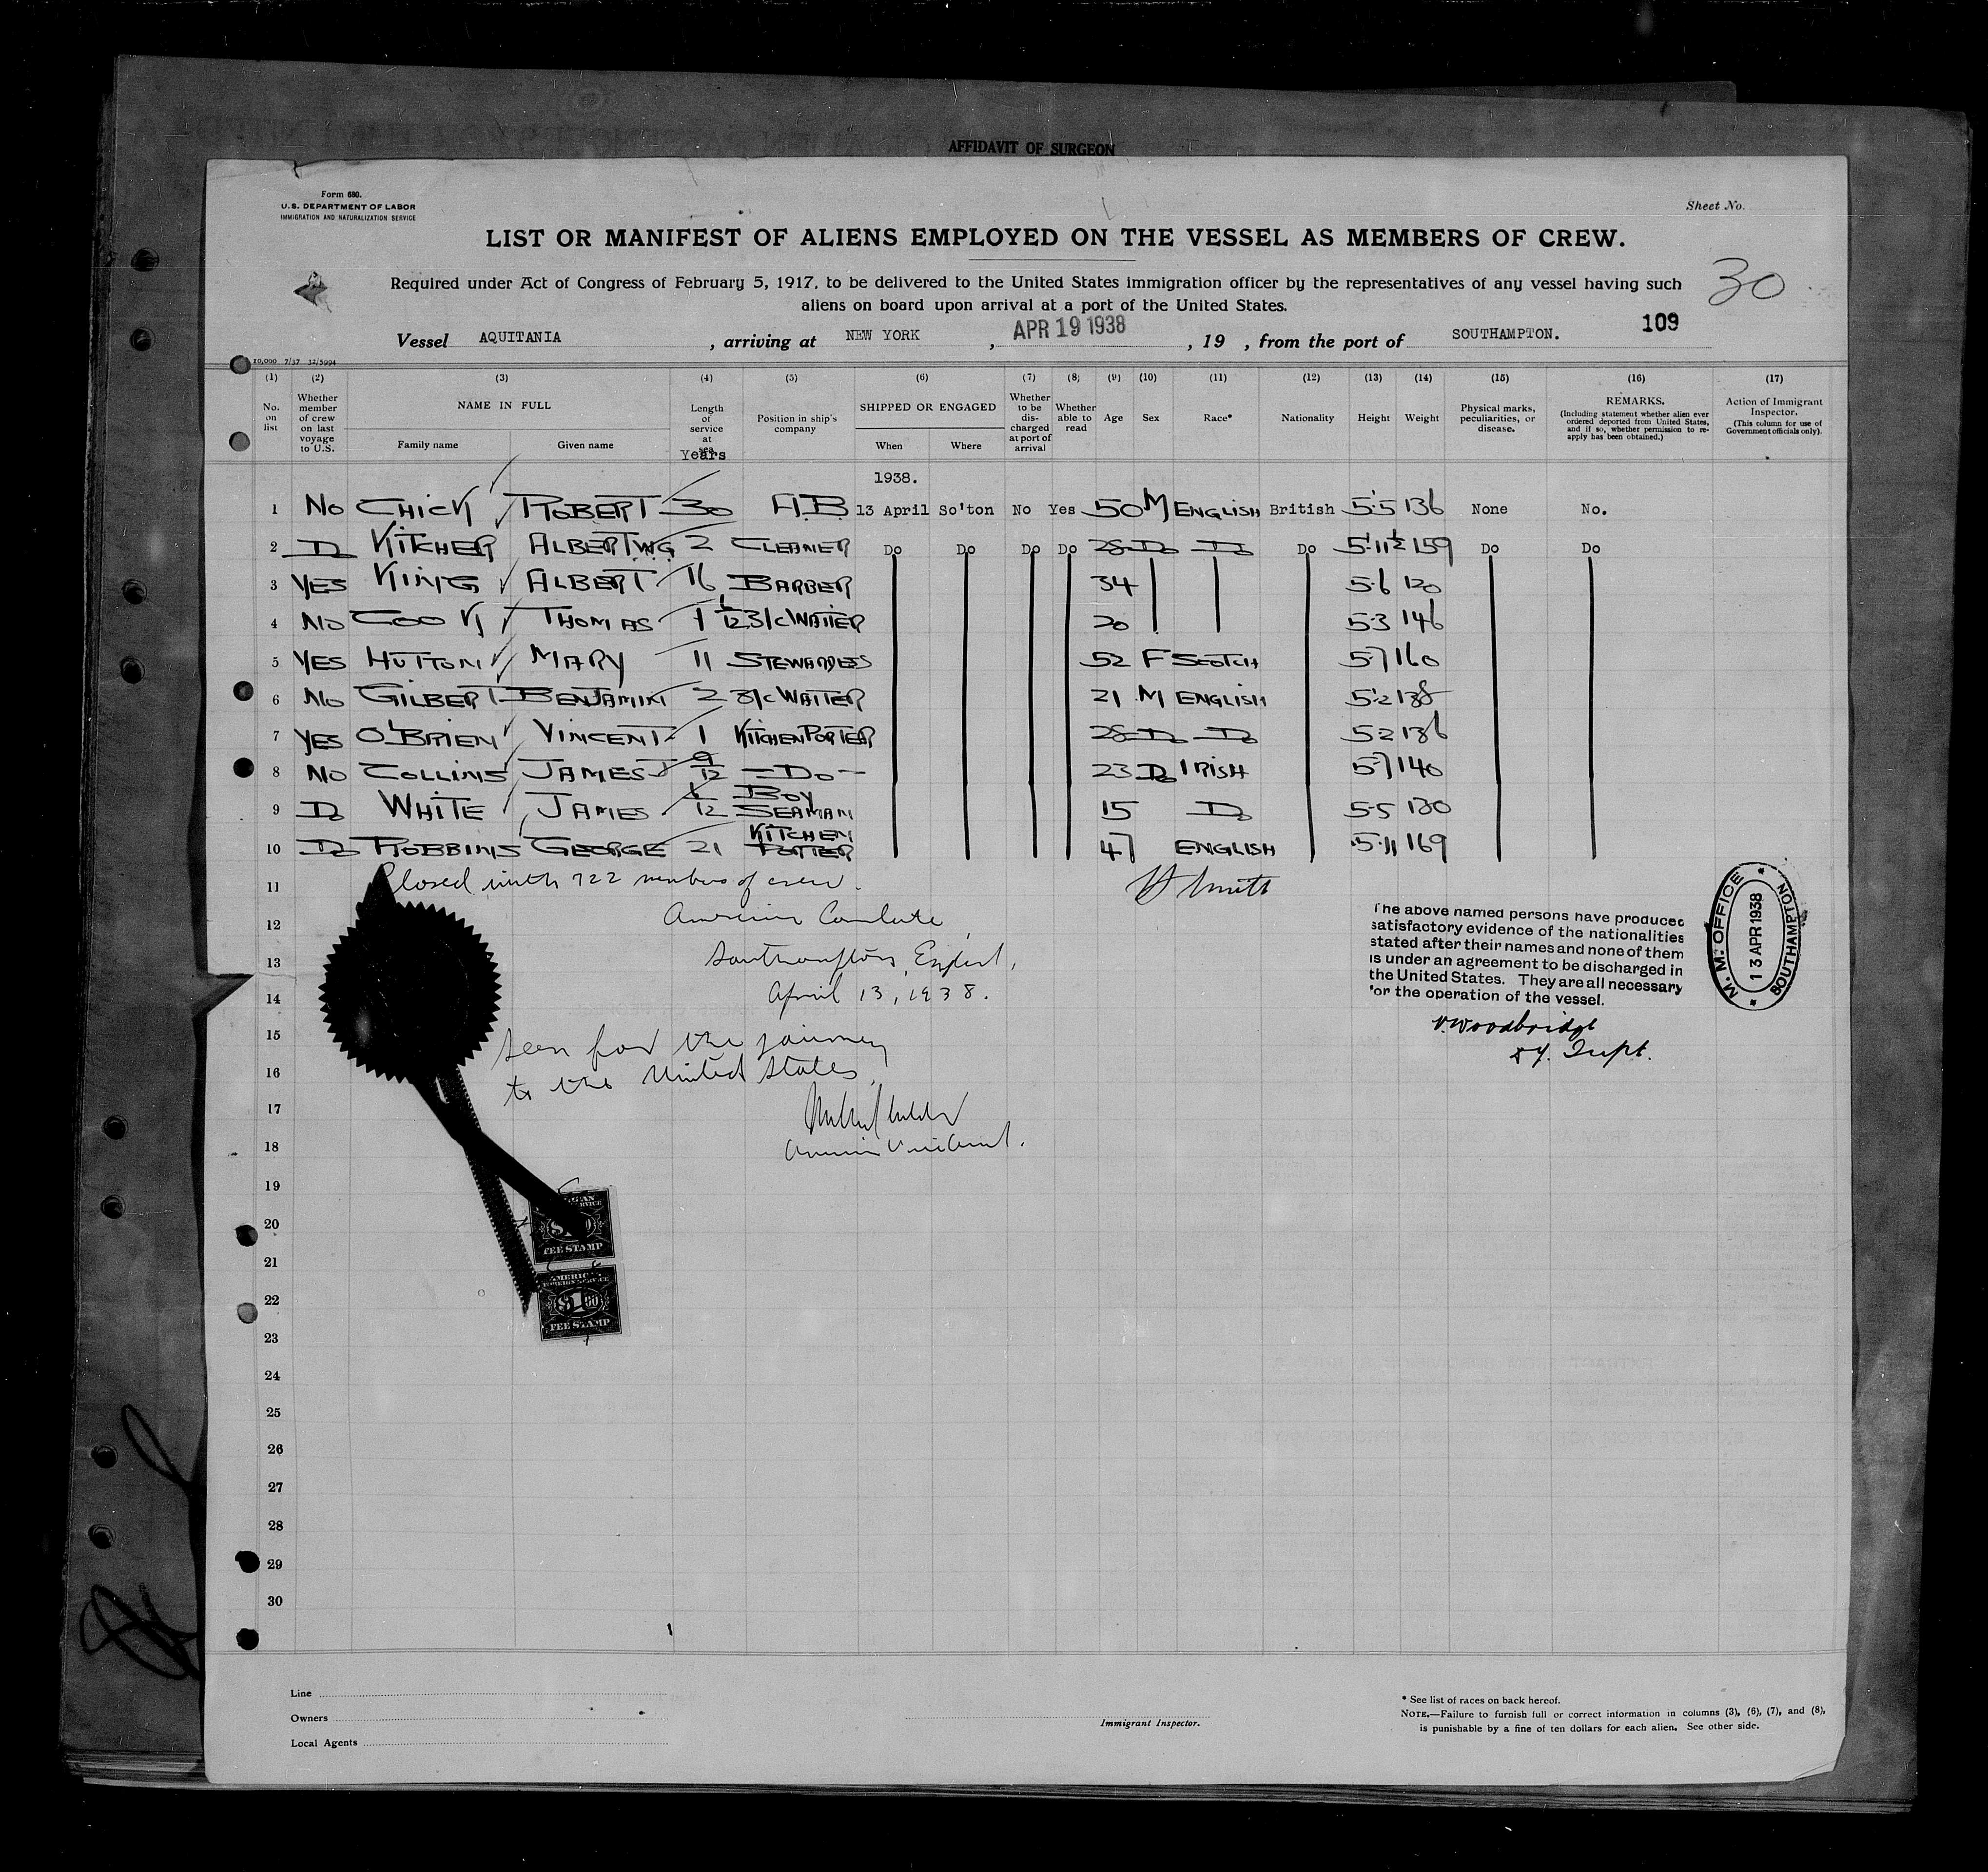 AFFIDAVIT OF SURGEON
Form 680.
U.S. DEPARTMENT OF LABOR
IMMIGRATION AND NATURALIZATION SERVICE
Sheet No.
LIST OR MANIFEST OF ALIENS EMPLOYED ON THE VESSEL AS MEMBERS OF CREW.
Required under Act of Congress of February 5, 1917, to be delivered to the United States immigration officer by the representatives of any vessel having such
aliens on board upon arrival at a port of the United States.
30
109
Vessel AQUITANIA, arriving at NEW YORK, APR 19 1938, 19 , from the port of SOUTHAMPTON.
10,000 7/37 32/5994
(1) (2) (3) (4) (5) (6) (7) (8) (9) (10) (11) (12) (13) (14) (15) (16) (17)
No. on list
Whether member of crew on last voyage to U.S.
NAME IN FULL
Family name Given name
Length of service at sea
Years
Position in ship's company
SHIPPED OR ENGAGED
When Where
Whether to be discharged at port of arrival
Whether able to read
Age Sex Race* Nationality Height Weight
Physical marks, peculiarities, or disease.
REMARKS.
(Including statement whether alien ever ordered deported from United States, and if so, whether permission to re-apply has been obtained.)
Action of Immigrant Inspector.
(This column for use of Government officials only).
1938.
1 No CHICK ROBERT 30 A.B. 13 April So'ton No Yes 50 M ENGLISH British 5·5 136 None No.
2 Do KITCHER ALBERT W.G. 2 CLEANER Do Do Do Do 28 Do Do Do 5·11½ 159 Do Do
3 YES KING ALBERT 16 BARBER 34 5·6 120
4 NO COOK THOMAS 1/12 3/C WAITER 20 5·3 146
5 YES HUTTON MARY 11 STEWARDESS 52 F SCOTCH 5·7 160
6 NO GILBERT BENJAMIN 2 3/C WAITER 21 M ENGLISH 5·2 138
7 YES O'BRIEN VINCENT 1 KITCHEN PORTER 28 Do Do 5·2 136
8 NO COLLINS JAMES J 9/12 Do 23 Do IRISH 5·7 140
9 Do WHITE JAMES 1/12 BOY SEAMAN 15 Do 5·5 130
10 Do ROBBINS GEORGE 21 KITCHEN PORTER 47 ENGLISH 5·11 169
11 Closed with 722 members of crew.
12 American Consulate,
13 Southampton, England,
14 April 13, 1938.
15 Seen for the journey
16 to the United States
17
18 American Vice Consul.
19
20
21
22
23
24
25
26
27
28
29
30
H Smith
The above named persons have produced
satisfactory evidence of the nationalities
stated after their names and none of them
is under an agreement to be discharged in
the United States. They are all necessary
for the operation of the vessel.
V. Woodbridge
Dy. Supt.
M. M. OFFICE
13 APR 1938
SOUTHAMPTON
FEE STAMP
AMERICAN
FOREIGN SERVICE
$1.00
FEE STAMP
Line
Owners
Local Agents
Immigrant Inspector.
* See list of races on back hereof.
NOTE.—Failure to furnish full or correct information in columns (3), (6), (7), and (8),
is punishable by a fine of ten dollars for each alien. See other side.